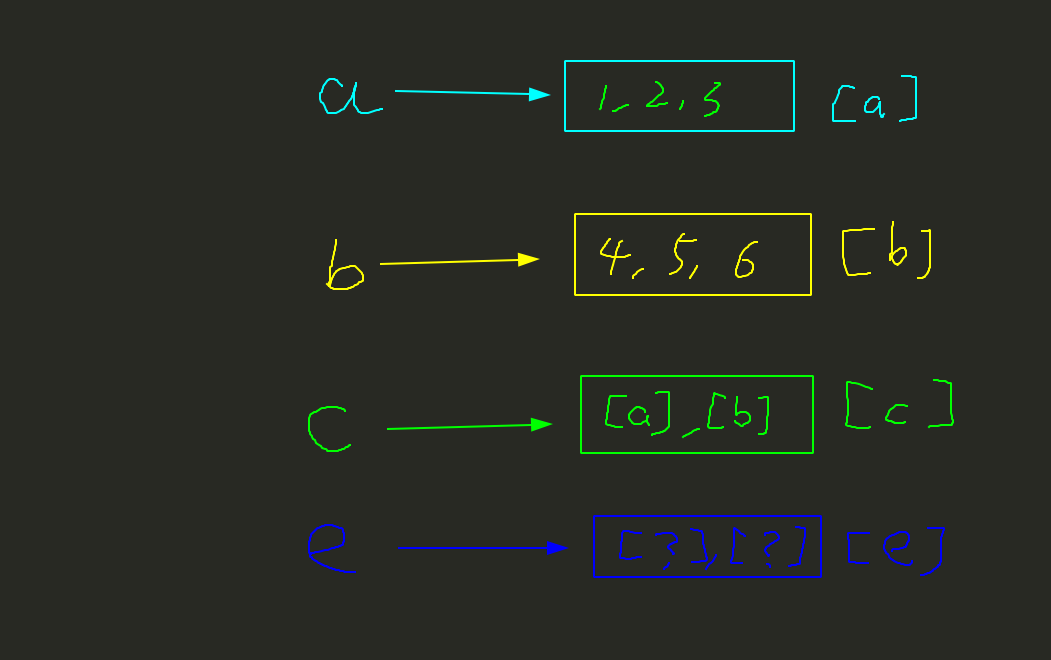 a 1, 2, 3 [a]
b 4, 5, 6 [b]
c [a], [b] [c]
e [?], [?] [e]